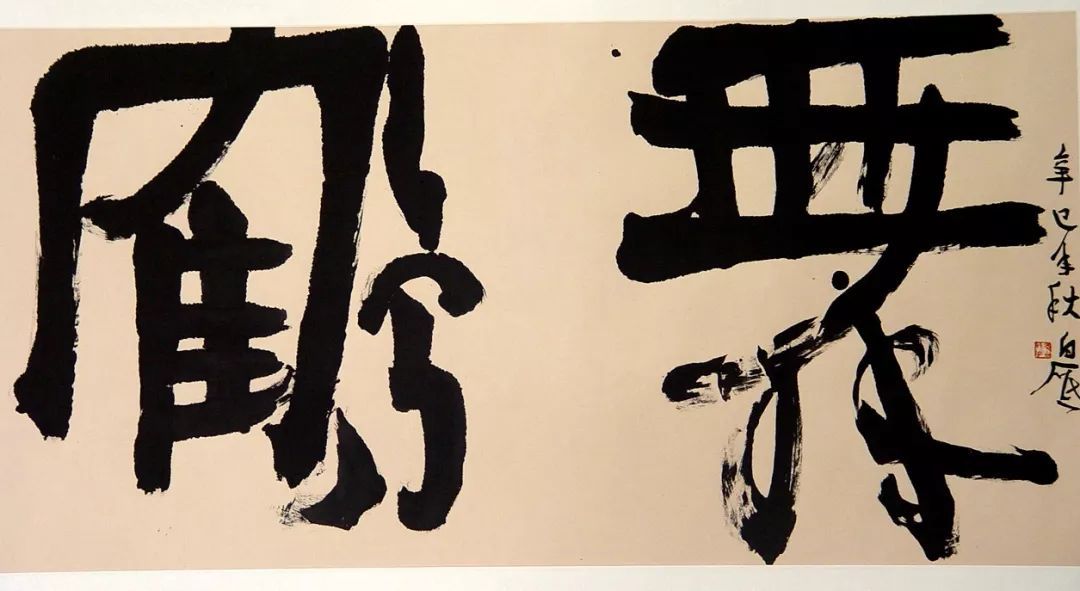 舞鶴
辛巳年秋白砥